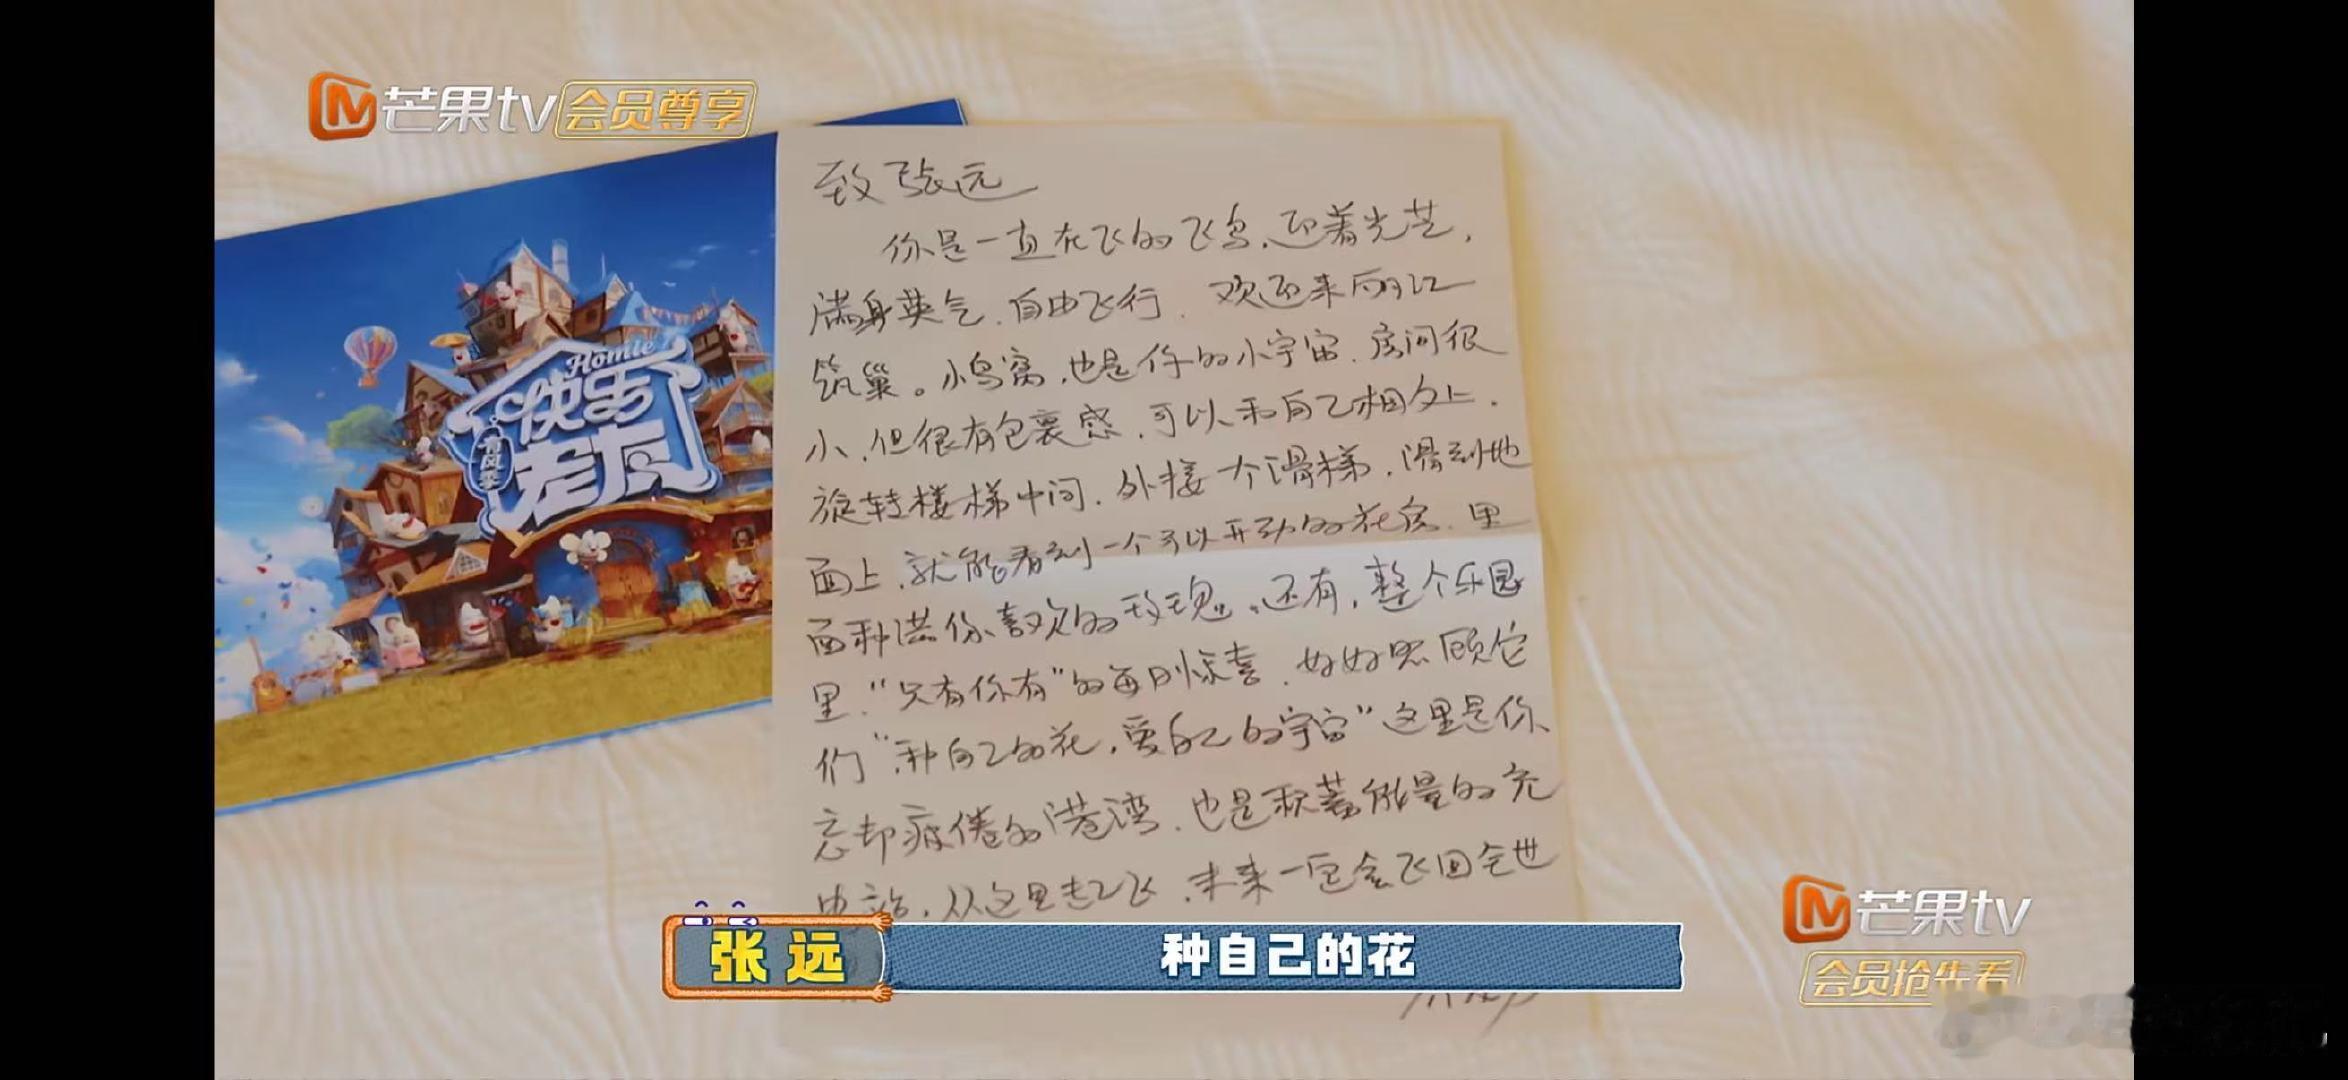 芒果tv会员尊享
Homie
快乐老友
有风季
致张远
你是一直在飞的飞鸟，迎着光芒，
满身英气，自由飞行，欢迎来丽江
筑巢。小鸟窝，也是你的小宇宙，房间很
小，但很有包裹感，可以和自己相处，
旋转楼梯中间，外接一个滑梯，滑到地
面上，就能看到一个可以开动的花房，里
面种满你喜欢的玫瑰。还有，整个乐园
里，“只有你有”的每日惊喜，好好照顾它
们“种自己的花，爱自己的宇宙”这里是你
忘却疲倦的港湾，也是积蓄能量的充
电站，从这里起飞，未来一定会飞回全世
张远
种自己的花
芒果tv
会员抢先看